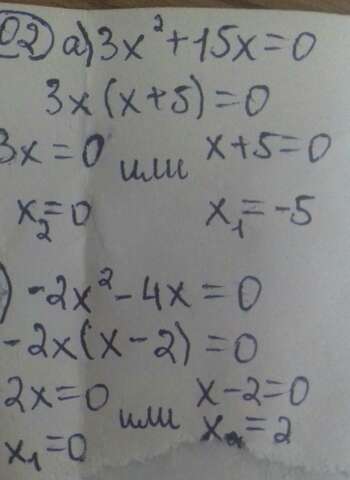 02) а) 3x² + 15x = 0
3x(x+5) = 0
3x = 0 или x+5 = 0
x₂ = 0 x₁ = -5
) -2x² - 4x = 0
-2x(x-2) = 0
2x = 0 или x-2 = 0
x₁ = 0 x₂ = 2